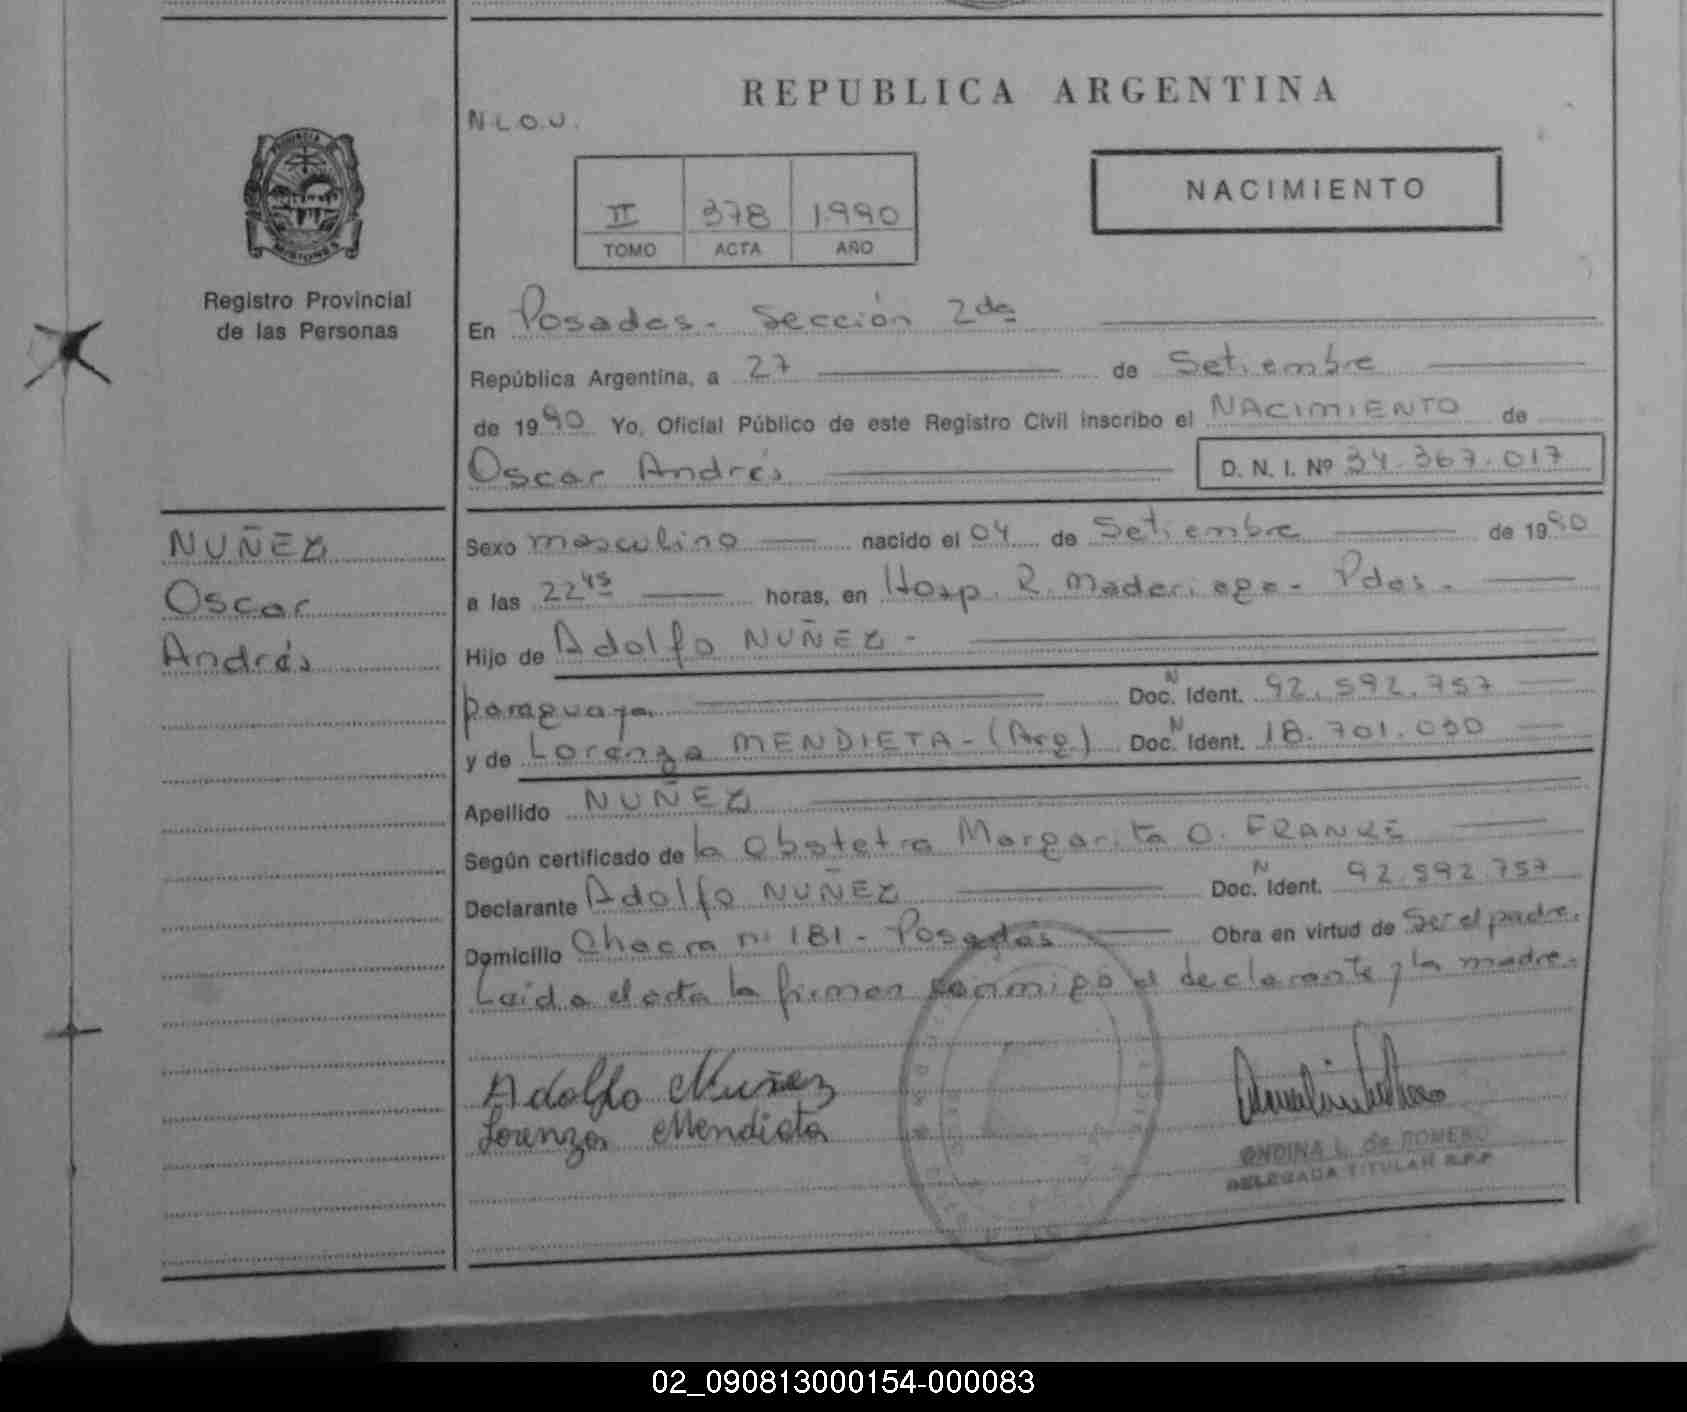 REPUBLICA ARGENTINA
N.L.O.U.
NACIMIENTO
II 378 1.990
TOMO ACTA AÑO
PROVINCIA DE
MISIONES
Registro Provincial
de las Personas
En Posadas - Sección 2da
República Argentina, a 27 de Setiembre
de 1990 Yo, Oficial Público de este Registro Civil inscribo el NACIMIENTO de
Oscar Andrés D. N. I. Nº 34.367.017
NUÑEZ
Oscar
Andrés
Sexo masculino nacido el 04 de Setiembre de 1990
a las 22 45 horas, en Hosp. R. Madariaga - Pdas.
Hijo de Adolfo NUÑEZ -
paraguayo N Doc. Ident. 92.592.757
y de Lorenza MENDIETA - (Arg.) N Doc. Ident. 18.701.030
Apellido NUÑEZ
Según certificado de la Obstetra Margarita O. FRANKE
Declarante Adolfo NUÑEZ N Doc. Ident. 92.592.757
Domicilio Chacra nº 181 - Posadas Obra en virtud de Ser el padre.
Leida el acta la firman conmigo el declarante y la madre.
Adolfo Nuñez
Lorenza Mendieta
ONDINA L. de ROMERO
DELEGADA TITULAR R.P.P.
02_090813000154-000083